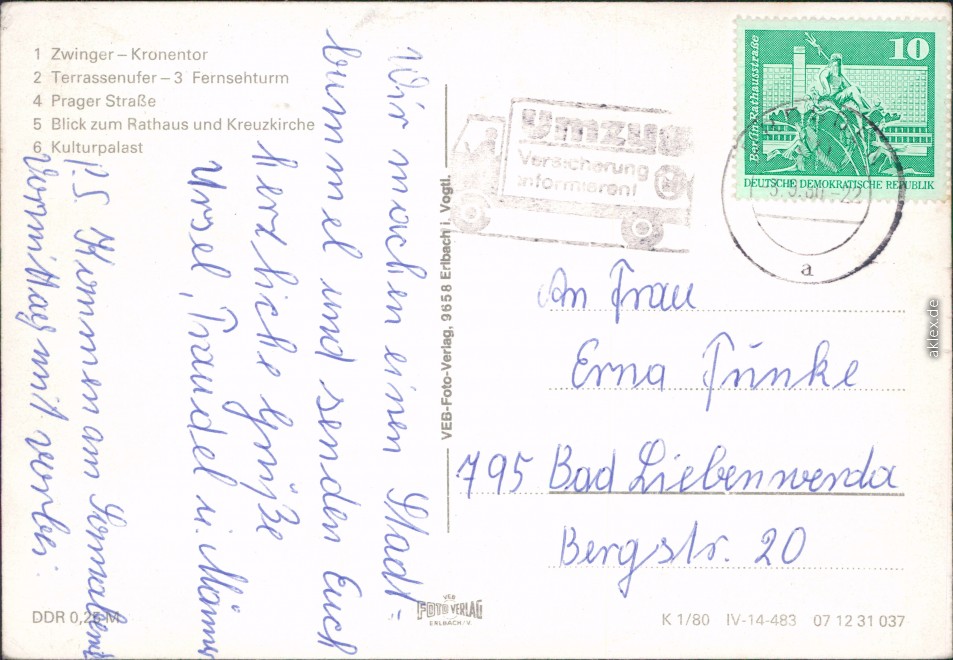 1 Zwinger – Kronentor
2 Terrassenufer – 3 Fernsehturm
4 Prager Straße
5 Blick zum Rathaus und Kreuzkirche
6 Kulturpalast
Wir machen einen Stadt-
bummel und senden Euch
herzliche Grüße
Ursel, Traudel u. Männer
P.S. Kommen am Sonnabend
Vormittag mit vorbei.
DDR 0,25 M
VEB-Foto-Verlag, 9658 Erlbach i. Vogtl.
VEB
FOTO VERLAG
ERLBACH/V.
Umzug
Versicherung
informieren!
10
Berlin, Rathausstraße
DEUTSCHE DEMOKRATISCHE REPUBLIK
-22
a
An Frau
Erna Funke
795 Bad Liebenwerda
Bergstr. 20
K 1/80 IV-14-483 07 12 31 037
aklex.de